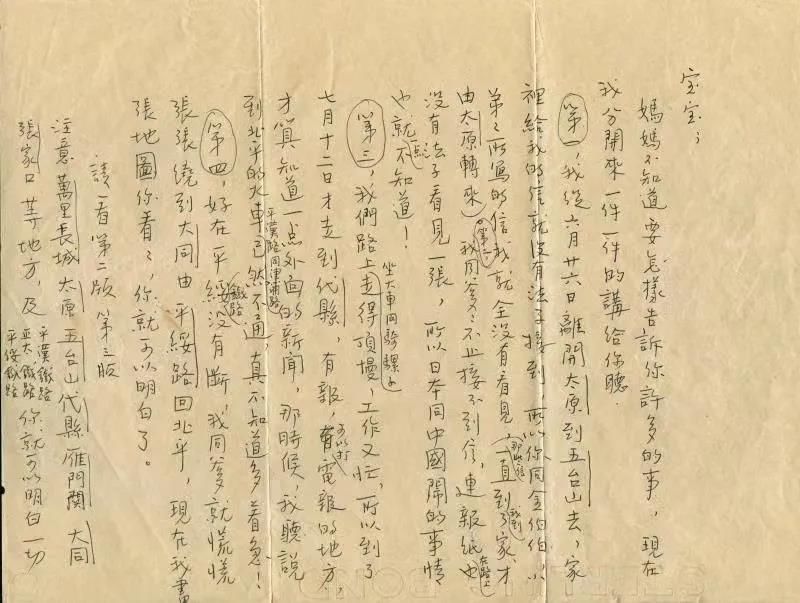 宝宝；
媽媽不知道要怎樣告訴你許多的事，現在
我分開來一件一件的講給你聽．
第一，我從六月廿六日離開太原到五台山去，家
裡給我的信就沒有法子接到，所以你同金伯伯，小
弟弟所寫的信我就全沒有看見（那些信一直到我到了家，才
由太原轉來）第二，我同爹爹不止接不到信，連報紙在路上也
沒有法子看見一張，所以日本同中國鬧的事情
也就一點不知道！
第三，我們路上坐大車同騎騾子走得頂慢，工作又忙，所以到了
七月十二日才走到代縣，有報，可以打電報的地方，
才算知道一点外面的新聞，那時候，我聽說
到北平的火車平漢路同津浦路已然不通，真不知道多着急！
第四，好在平綏鐵路沒有斷，我同爹爹就慌慌
張張繞到大同由平綏路回北平，現在我畫
張地圖你看看，你就可以明白了。
請看第二版 第三版
注意萬里長城太原五台山代縣雁門關 大同
張家口等地方，及平漢鐵路正太鐵路平綏鐵路你就可以明白一切